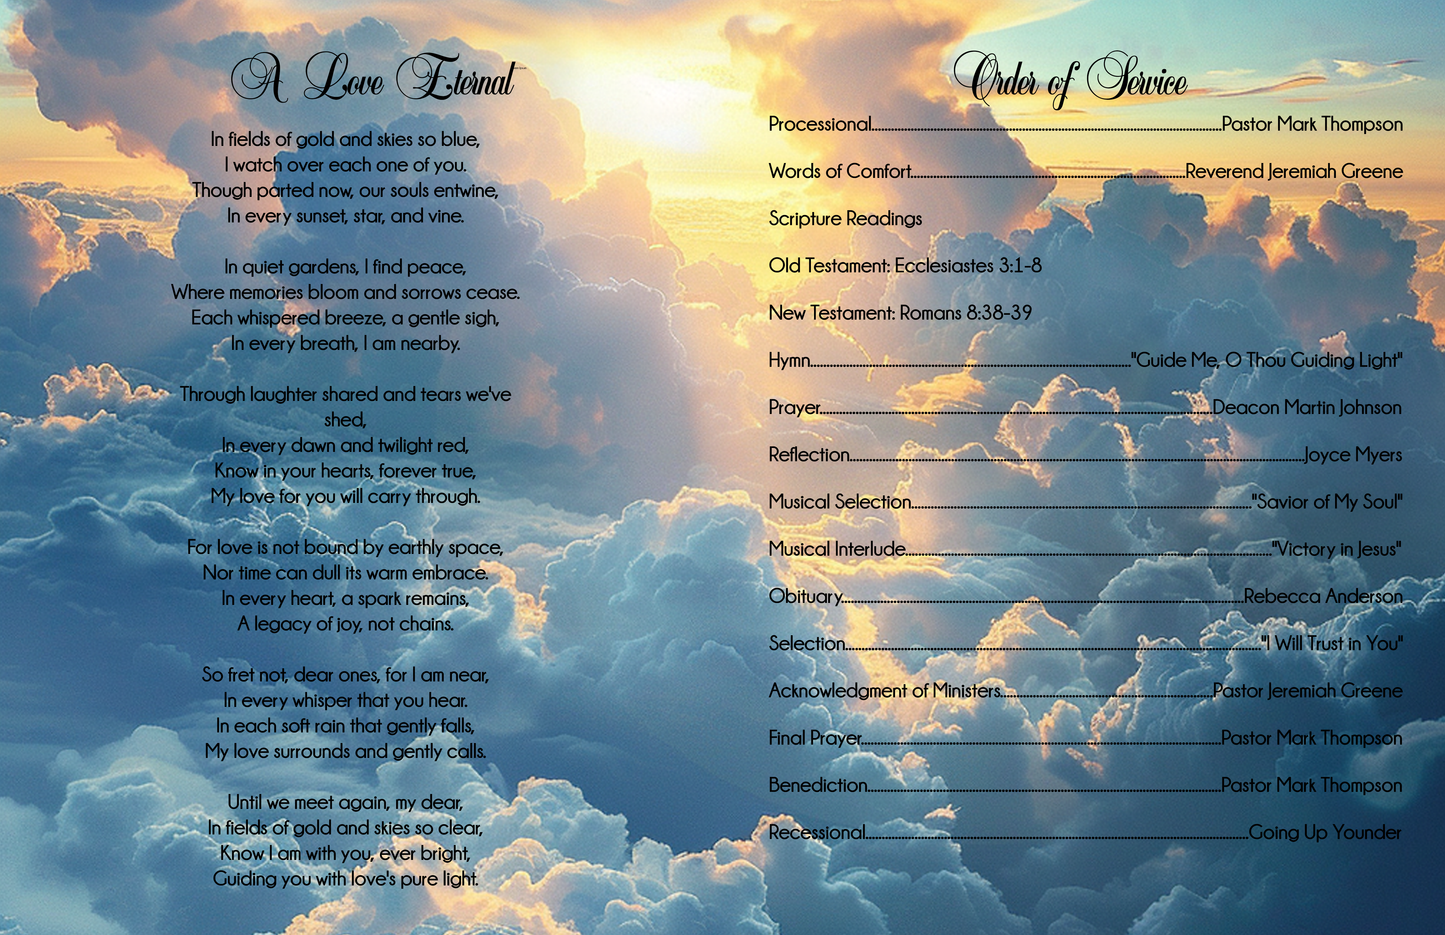 A Love Eternal
In fields of gold and skies so blue,
I watch over each one of you.
Though parted now, our souls entwine,
In every sunset, star, and vine.
In quiet gardens, I find peace,
Where memories bloom and sorrows cease.
Each whispered breeze, a gentle sigh,
In every breath, I am nearby.
Through laughter shared and tears we've
shed,
In every dawn and twilight red,
Know in your hearts, forever true,
My love for you will carry through.
For love is not bound by earthly space,
Nor time can dull its warm embrace.
In every heart, a spark remains,
A legacy of joy, not chains.
So fret not, dear ones, for I am near,
In every whisper that you hear.
In each soft rain that gently falls,
My love surrounds and gently calls.
Until we meet again, my dear,
In fields of gold and skies so clear,
Know I am with you, ever bright,
Guiding you with love's pure light.
Order of Service
Processional........................Pastor Mark Thompson
Words of Comfort........................Reverend Jeremiah Greene
Scripture Readings
Old Testament: Ecclesiastes 3:1-8
New Testament: Romans 8:38-39
Hymn........................"Guide Me, O Thou Guiding Light"
Prayer........................Deacon Martin Johnson
Reflection........................Joyce Myers
Musical Selection........................"Savior of My Soul"
Musical Interlude........................"Victory in Jesus"
Obituary........................Rebecca Anderson
Selection........................"I Will Trust in You"
Acknowledgment of Ministers........................Pastor Jeremiah Greene
Final Prayer........................Pastor Mark Thompson
Benediction........................Pastor Mark Thompson
Recessional........................Going Up Younder